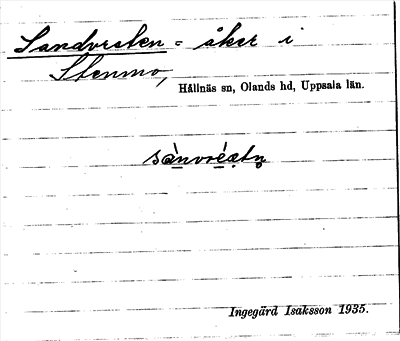 Sandvreten = åker i
Stenmo,
Hållnäs sn, Olands hd, Uppsala län.
sànvréætn̥
Ingegärd Isaksson 1935.